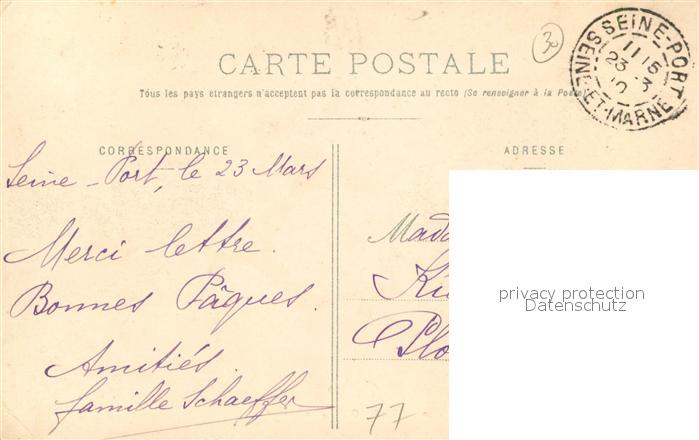 30
SEINE-PORT
11 15
23 3
SEINE-ET-MARNE
CARTE POSTALE
Tous les pays étrangers n'acceptent pas la correspondance au recto (Se renseigner à la Poste)
CORRESPONDANCE
ADRESSE
Seine-Port, le 23 Mars
Merci lettre.
Bonnes Pâques.
Amitiés.
famille Schaeffer
Mada
Plo
privacy protection
Datenschutz
77